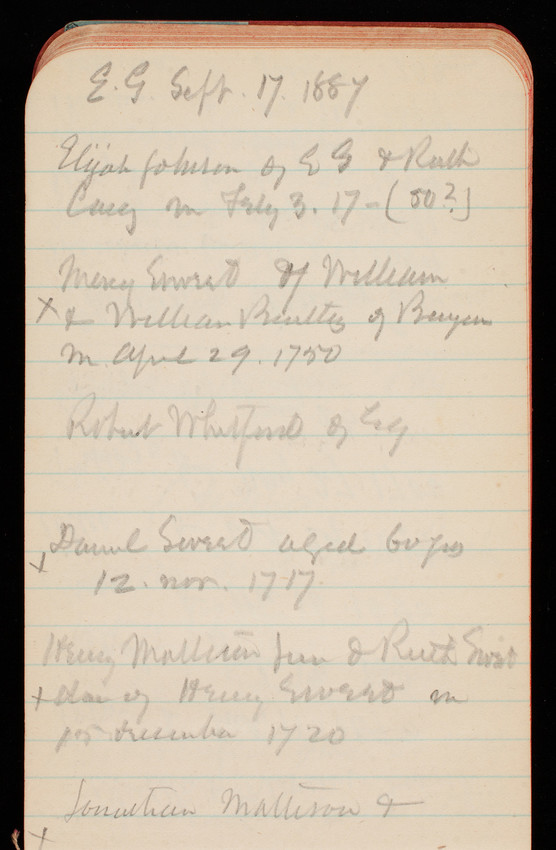 E. G. Sept. 17. 1887
Elijah Johnson of E G & Ruth
Casey m Feby 3. 17- (50?)
Mercy Sweet of William
x & William Bentley of Benjen
m April 29. 1750
Robert Whitford of E G
x Daniel Sweet aged 60 yrs
12. nov. 1717.
Henry Mattison Jun & Ruth Sweet
x dau of Henry Sweet m
15 december 1720
Jonathan Mattison &
x